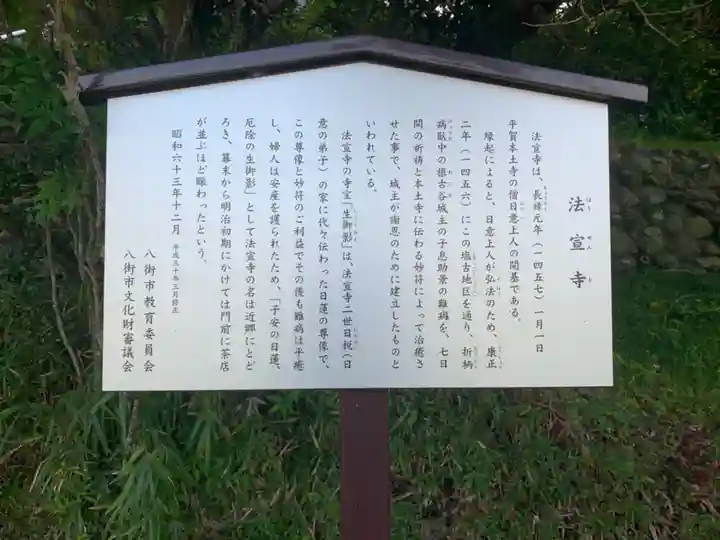 法宣寺
法宣寺は、長禄元年（一四五七）一月一日
平賀本土寺の僧日意上人の開基である。
縁起によると、日意上人が弘法のため、康正
二年（一四五六）にこの塩古地区を通り、折柄
病臥中の根古谷城主の子息助景の難病を、七日
間の祈祷と本土寺に伝わる妙符によって治癒さ
せた事で、城主が謝恩のために建立したものと
いわれている。
法宣寺の寺宝「生御影」は、法宣寺二世日税（日
意の弟子）の家に代々伝わった日蓮の尊像で、
この尊像と妙符のご利益でその後も難病は平癒
し、婦人は安産を護られたため、「子安の日蓮、
厄除の生御影」として法宣寺の名は近郷にとど
ろき、幕末から明治初期にかけては門前に茶店
が並ぶほど賑わったという。
昭和六十三年十二月 平成三十年三月修正
八街市教育委員会
八街市文化財審議会